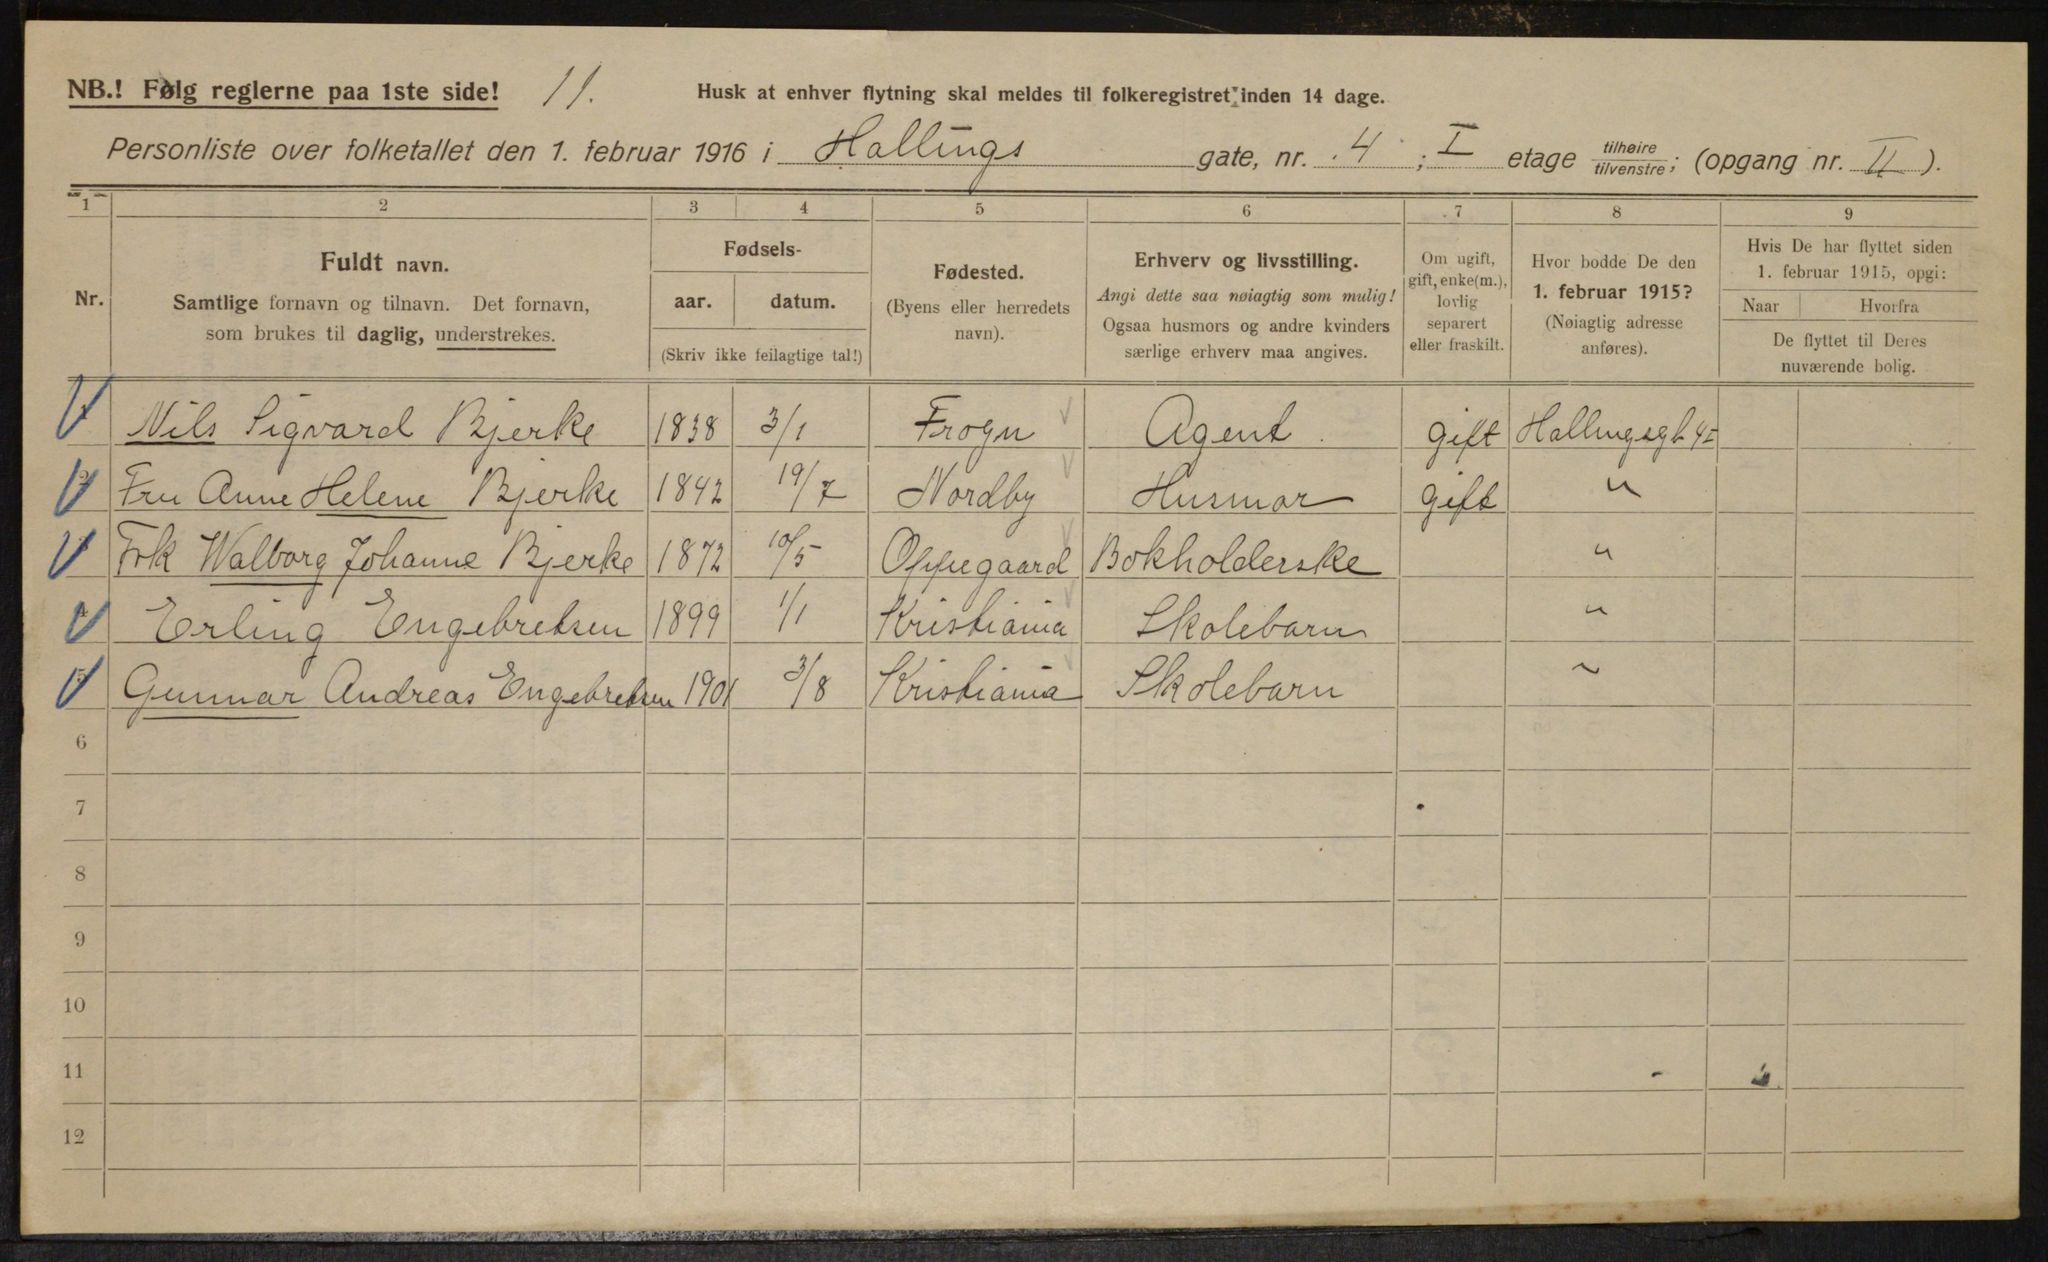 NB.! Følg reglerne paa 1ste side! 11. Husk at enhver flytning skal meldes til folkeregistret inden 14 dage.
Personliste over folketallet den 1. februar 1916 i Hallings gate, nr. 4 ; I etage tilhøire/tilvenstre; (opgang nr. II ).
1 2 3 4 5 6 7 8 9
Nr.
Fuldt navn.
Samtlige fornavn og tilnavn. Det fornavn,
som brukes til daglig, understrekes.
Fødsels-
aar. datum.
(Skriv ikke feilagtige tal!)
Fødested.
(Byens eller herredets
navn).
Erhverv og livsstilling.
Angi dette saa nøiagtig som mulig!
Ogsaa husmors og andre kvinders
særlige erhverv maa angives.
Om ugift,
gift, enke(m.),
lovlig
separert
eller fraskilt.
Hvor bodde De den
1. februar 1915?
(Nøiagtig adresse
anføres).
Hvis De har flyttet siden
1. februar 1915, opgi:
Naar Hvorfra
De flyttet til Deres
nuværende bolig.
Nils Sigvard Bjerke 1838 3/1 Frogn Agent. gift Hallingsgt 4 I
2 Fru Anne Helene Bjerke 1842 19/7 Nordby Husmor gift "
Frk Walborg Johanne Bjerke 1872 10/5 Oppegaard Bokholderske "
4 Erling Engebretsen 1899 1/1 Kristiania Skolebarn "
5 Gunnar Andreas Engebretsen 1901 3/8 Kristiania Skolebarn "
6
7
8
9
10
11
12